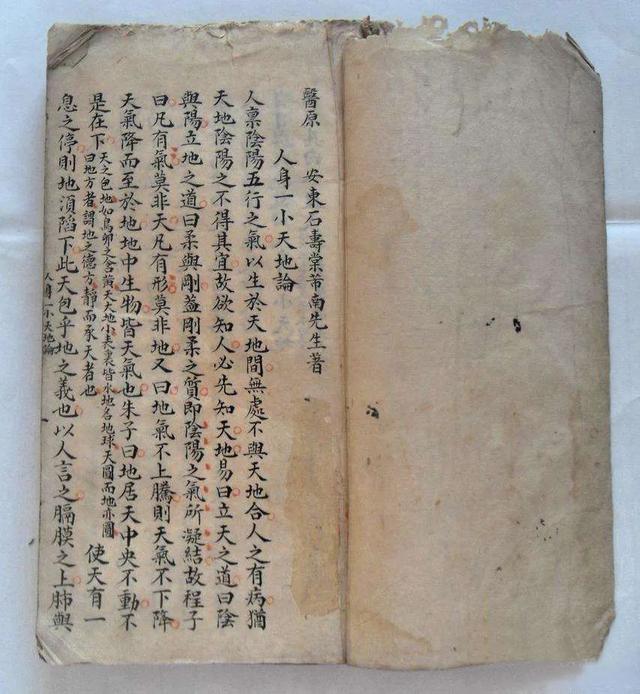 醫原 安東石壽棠芾南先生著
人身一小天地論
人禀陰陽五行之氣以生於天地間無處不與天地合人之有病猶
天地陰陽之不得其宜故欲知人必先知天地易曰立天之道曰陰
與陽立地之道曰柔與剛蓋剛柔之質即陰陽之氣所凝結故程子
曰凡有氣莫非天凡有形莫非地又曰地氣不上騰則天氣不下降
天氣降而至於地地中生物皆天氣也朱子曰地居天中央不動不
是在下天之包地如鳥卵之含黃天大地小表裏皆水地名地球天圓而地亦圓
曰地方者謂地之德方靜而承天者也使天有一
息之停則地須陷下此天包乎地之義也以人言之膈膜之上肺與
人身一小天地論